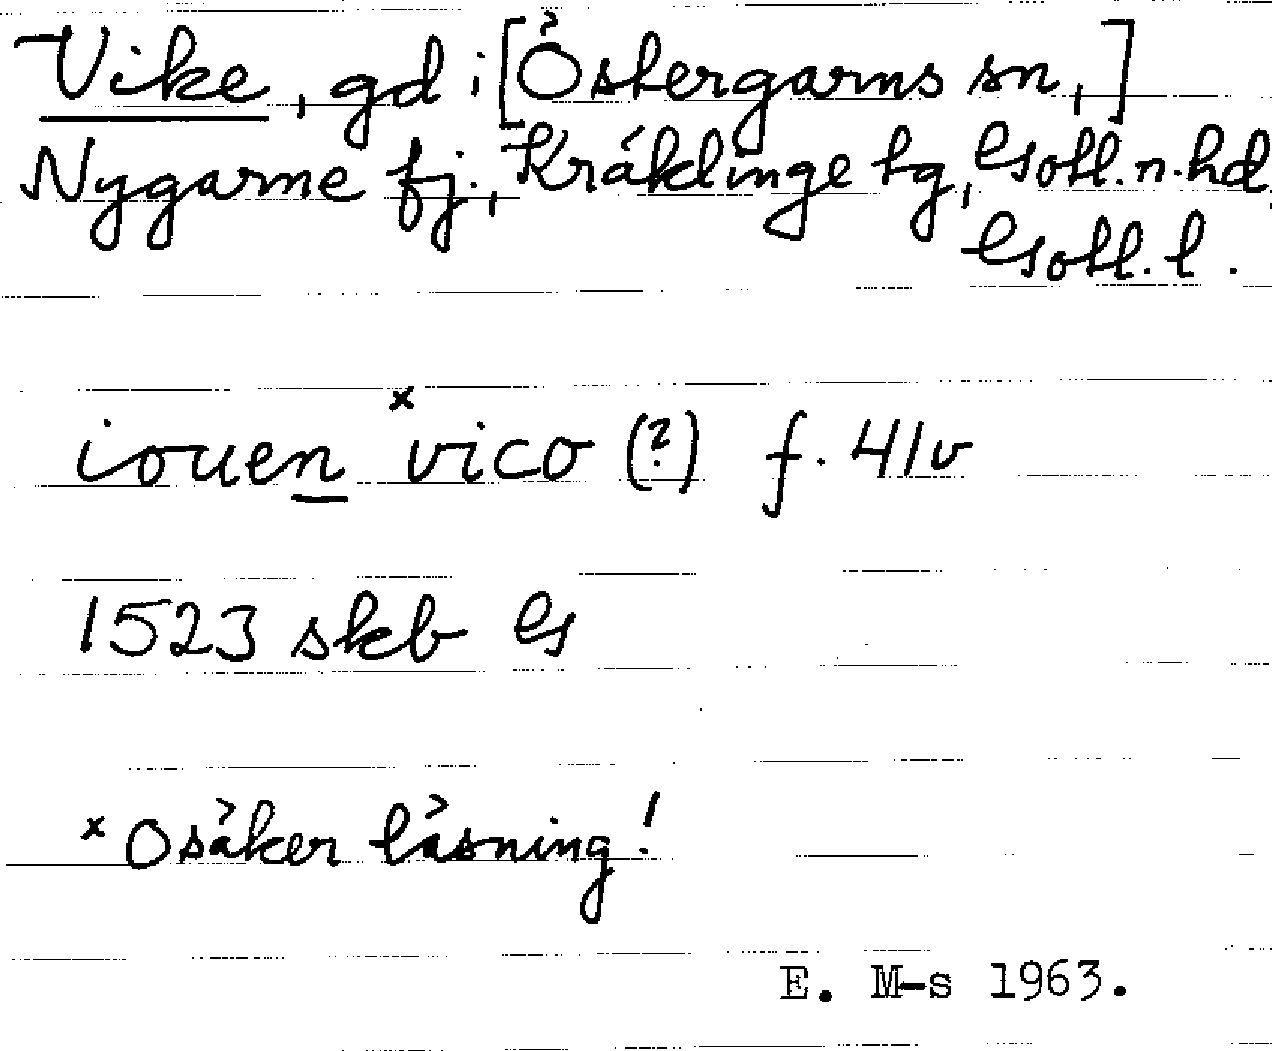 Vike, gd i [Östergarns sn,]
Nygarne fj., Kräklinge tg, Gotl. n. hd,
Gotl. l.
iouen ˣvico (?) f. 41v
1523 skb G
ˣ Osäker läsning!
E. M-s 1963.